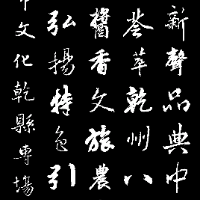 新聲品典中
荟萃乾州八
醬香文旅農
弘揚特色引
文化乾縣專場